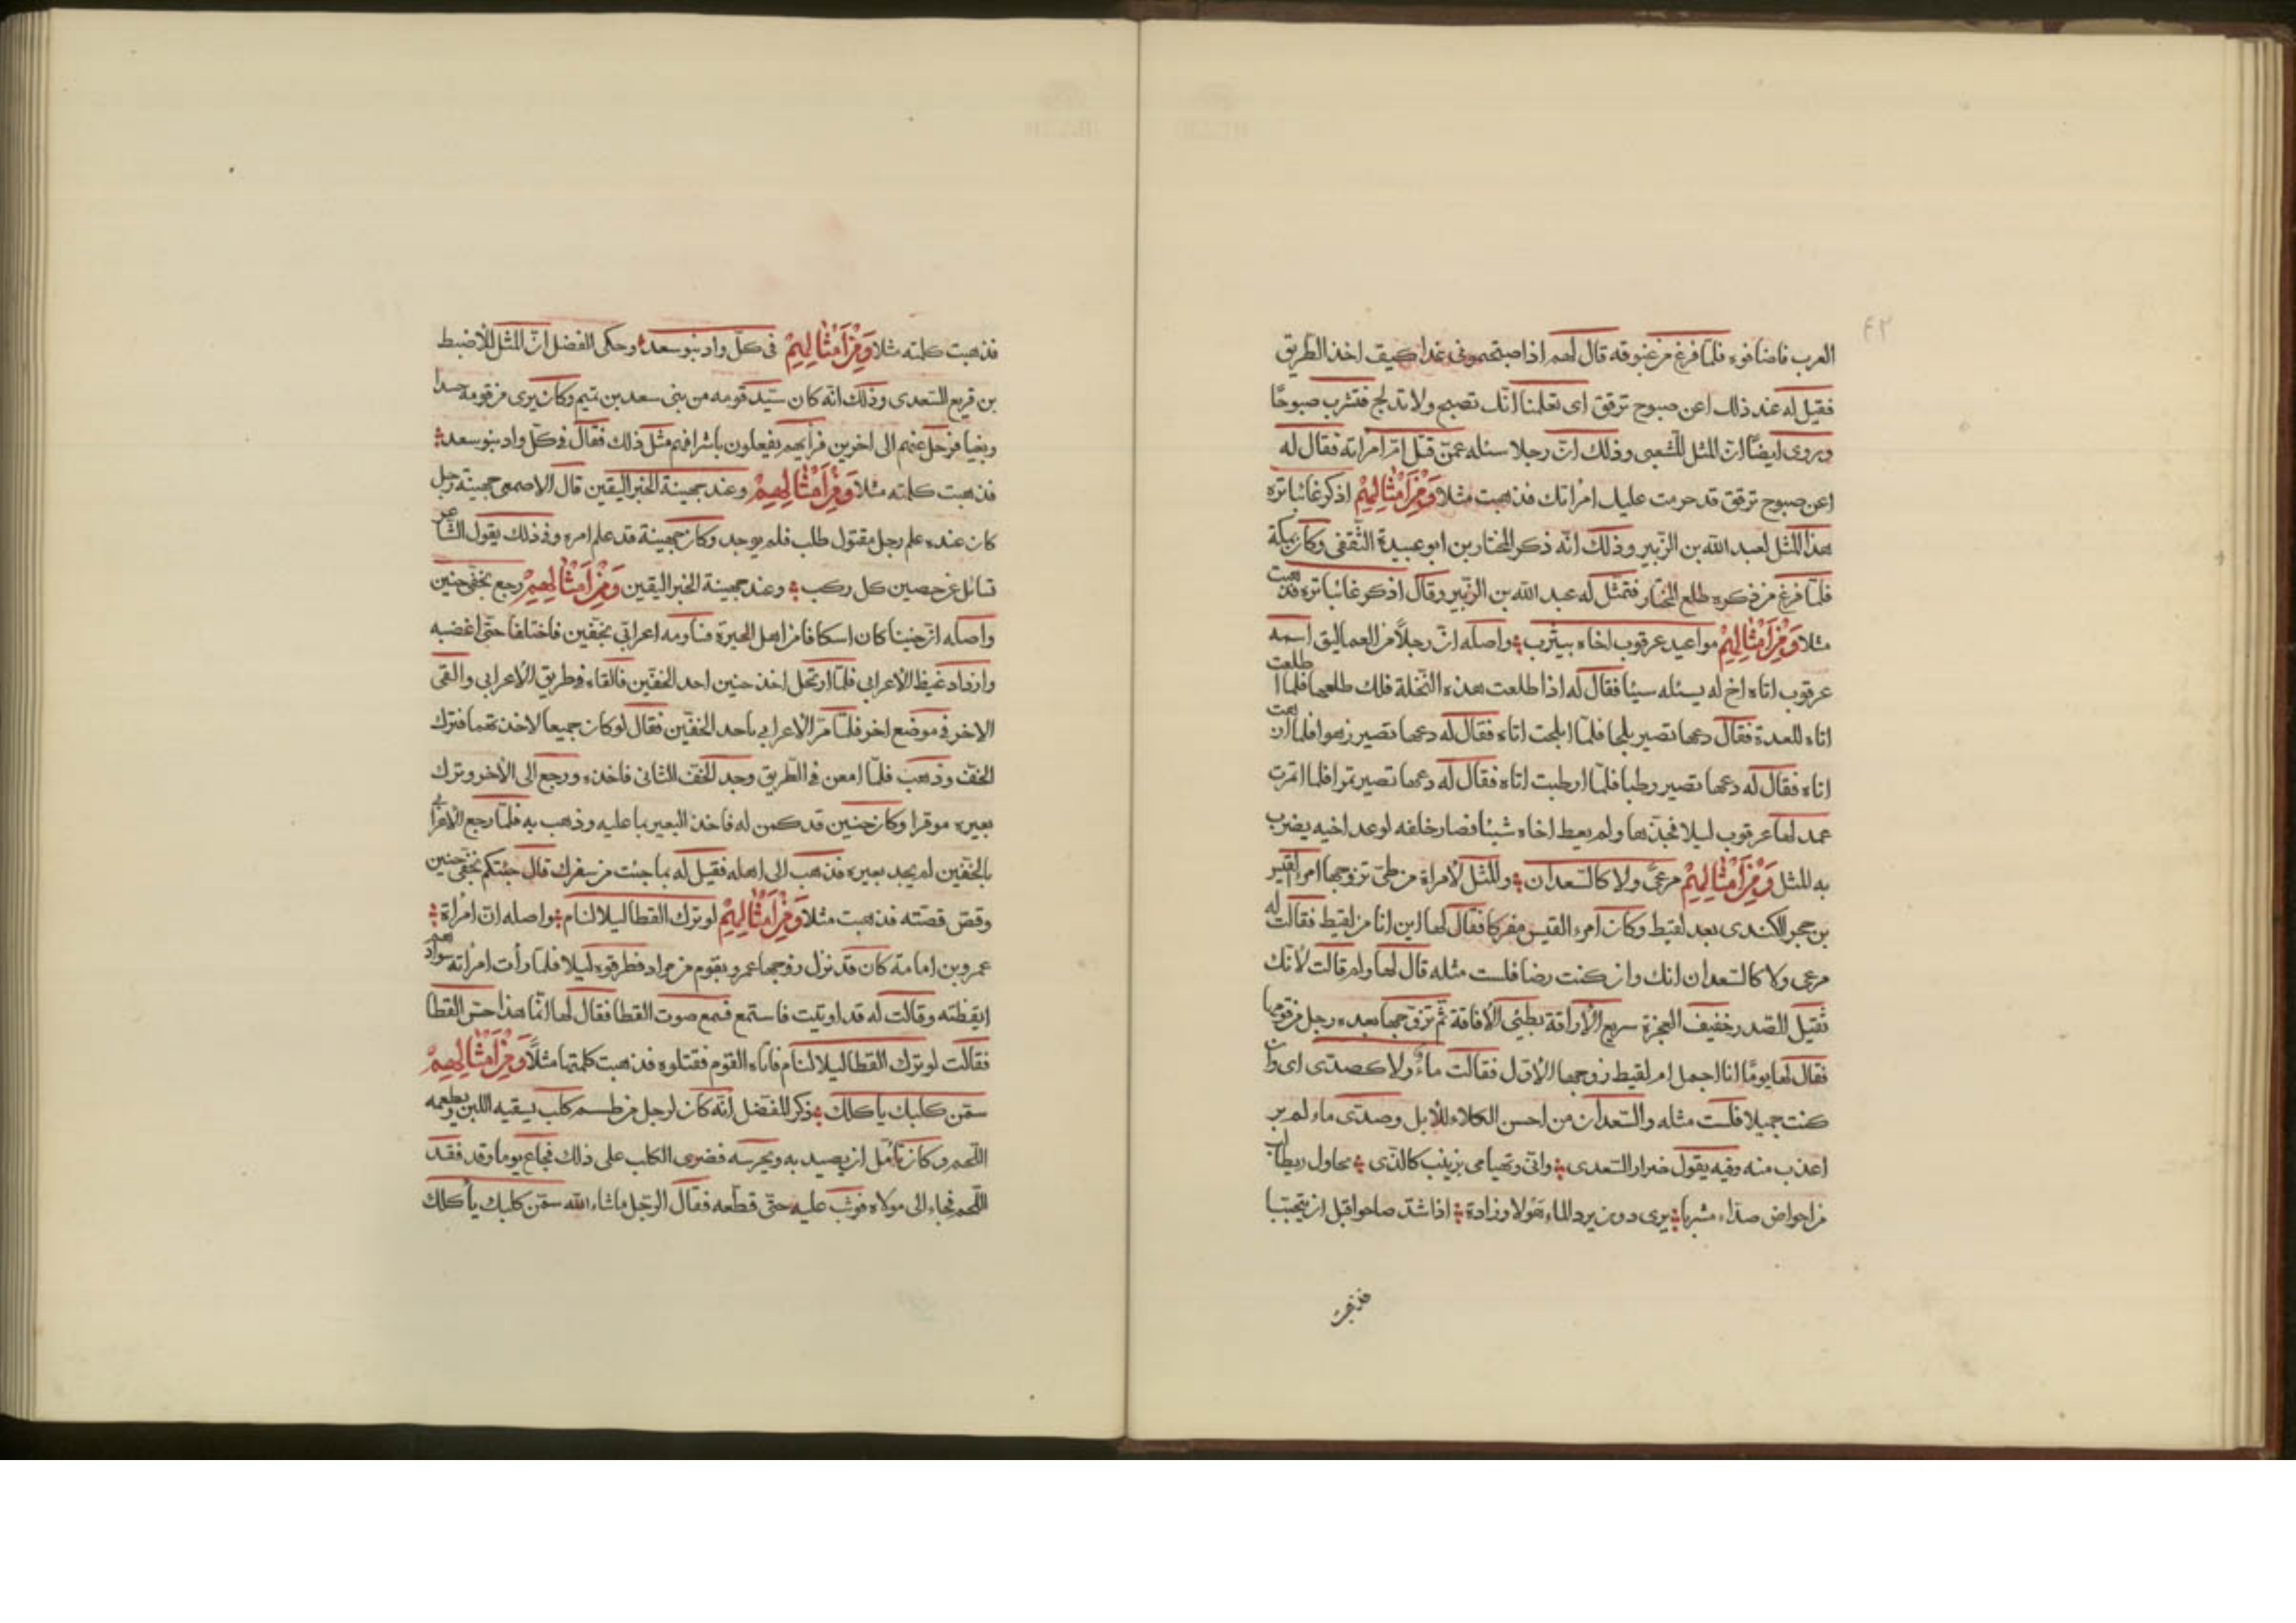 ٤٢
العرب فاضافوه فلمّا فرغ من غبوقه قال لهم اذا صبحتمونى غدا كيف اخذ الطريق
فقيل له عند ذلك اعن صبوح ترقق اى تعلمنا انّك تصبح ولا تدلج فتشرب صبوحًا
ويروى ايضًا انّ المثل للشعبى وذلك انّ رجلا سئله عمّن قبّل امّ امرأته فقال له
اعن صبوح ترقق قد حرمت عليك امرأتك فذهبت مثلا وَمِنْ اَمْثَالِهِمْ اذكر غائبا تره
هذا المثل لعبد الله بن الزّبير وذلك انّه ذكر المختار بن ابو عبيدة الثّقفى وكان بمكّة
فلمّا فرغ من ذكره طلع المختار فتمثّل له عبد الله بن الزّبير وقال اذكر غائبا تره فذهبت
مثلا وَمِنْ اَمْثَالِهِمْ مواعيد عرقوب اخاه بيثرب واصله انّ رجلاً من العماليق اسمه
عرقوب اتاه اخ له يسئله سيئا فقال له اذا طلعت هذه النّخلة فلك طلعها فلما اطلعت
اتاه للعدة فقال دعها تصير بلحا فلمّا ابلحت اتاه فقال له دعها تصير زهوا فلما ازهت
اتاه فقال له دعها تصير رطبا فلمّا ارطبت اتاه فقال له دعها تصير تمرا فلما اتمرت
عمد لها عرقوب ليلا فجذّها ولم يعط اخاه شيئا فصار خلفه لوعد اخيه يضرب
به المثل وَمِنْ اَمْثَالِهِمْ مرعىً ولا كالسّعدان والمثل لأمراة من طىّ تزوجها امرأ القيس
بن حجر الكندى بعد لقيط وكان امرء القيس مفركا فقال لها اين انا من لقيط فقالت له
مرعى ولا كالسّعدان انك وان كنت رضا فلست مثله قال لها ولم قالت لأنك
ثقيل الصّدر خفيف العجزة سريع الأراقة بطئى الأفاقة ثمّ تزوّجها بعده رجل من قومها
فقال لها يومًا انا اجمل ام لقيط زوجها الأوّل فقالت ماءٌ ولا كصدّى اى وان
كنت جميلا فلست مثله والسّعدان من احسن الكلاء للأبل وصدّى ماء لم ير
اعذب منه وفيه يقول ضرار السّعدى وانّى وتهيامى بزينب كالذّى يحاول
من احواض صدّاء مشربا يرى دون برد الماء هولا وزادة اذا شدّ صاحوا قبل ان يتحببا
فذهبت
فذهبت كلمته مثلا وَمِنْ اَمْثَالِهِمْ فى كلّ واد بنو سعد وحكى المفضل انّ المثل للأضبط
بن قريع السّعدى وذلك انّه كان سيّد قومه من بنى سعد بن تميم وكان يرى من قومه حسدا
وبغيا فرحل عنهم الى اخرين فرأيهم يفعلون باشرافهم مثل ذلك فقال فى كلّ واد بنو سعد
فذهبت كلمته مثلا وَمِنْ اَمْثَالِهِمْ وعند جهينة الخبر اليقين قال الاصمعى جهينة رجل
كان عنده علم رجل مقتول طلب فلم يوجد وكان جهينة قد علم امره وفى ذلك يقول الشّاعر
تسائل عن حصين كل ركب وعند جهينة الخبر اليقين وَمِنْ اَمْثَالِهِمْ رجع بخفّى حنين
واصله انّ حنينا كان اسكافا من اهل الحيرة فساومه اعرابّى بخفّين فاختلفا حتّى اغضبه
وازداد غيظ الأعرابى فلمّا ارتحل اخذ حنين احد الخفّين فالقاه فى طريق الأعرابى والقى
الاخر فى موضع اخر فلمّا مرّ الأعرابى باحد الخفّين فقال لو كان جميعا لاخذتهما فترك
الخفّ وذهب فلمّا امعن فى الطّريق وجد الخفّ الثّانى فاخذه ورجع الى الأخر وترك
بعيره موقرا وكان حنين قد كمن له فاخذ البعير بما عليه وذهب به فلمّا رجع الأعرابى
بالخفّين لم يجد بعيره فذهب الى اهله فقيل له بما جئت من سفرك قال جئتكم بخفّى حنين
وقصّ قصّته فذهبت مثلا وَمِنْ اَمْثَالِهِمْ لو ترك القطا ليلا لنام واصله انّ امرأة
عمرو بن امامة كان قد نزل زوجها عمرو بقوم من مراد فطرقوه ليلا فلمّا رأت امرأته سوادهم
ايقظته وقالت له قد اوتيت فاستمع فسمع صوت القطا فقال لها انّما هذا حسّ القطا
فقالت لو ترك القطا ليلا لنام فاتاه القوم فقتلوه فذهبت كلمتها مثلاً وَمِنْ اَمْثَالِهِمْ
سمّن كلبك يأكلك ذكر المفضل انّه كان لرجل من طسم كلب يسقيه اللبن ويطعمه
اللّحم وكان يأمل ان يصيد به ويحرسه فضرى الكلب على ذلك فجاع يوما وقد فقد
اللّحم فجاء الى مولاه فوثب عليه حتّى قطّعه فقال الرّجل ماشاء الله سمّن كلبك يأكلك